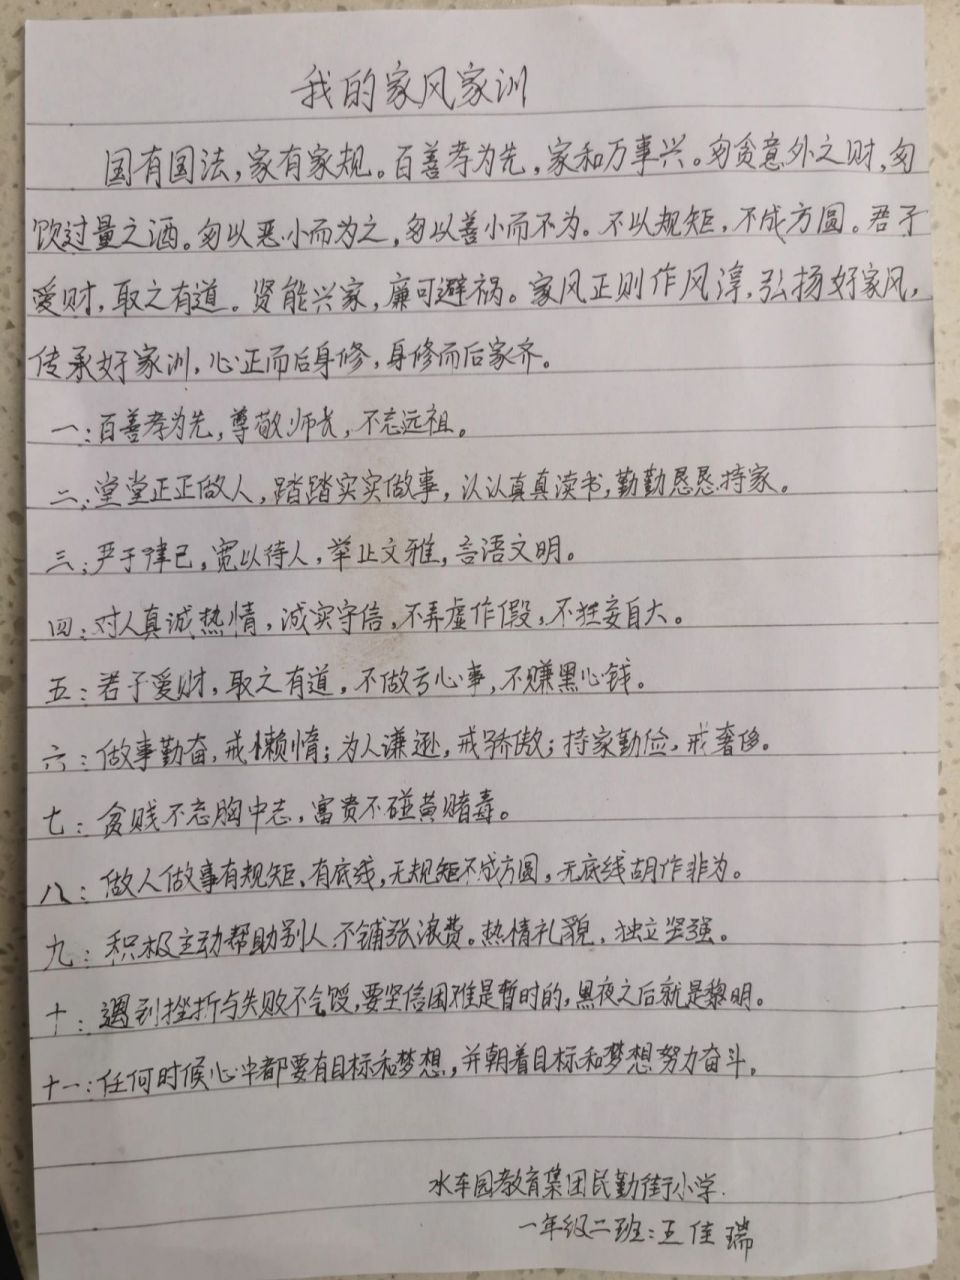 我的家风家训
国有国法,家有家规。百善孝为先,家和万事兴。匆贪意外之财,匆
饮过量之酒。匆以恶小而为之,匆以善小而不为。不以规矩,不成方圆。君子
爱财,取之有道。贤能兴家,廉可避祸。家风正则作风淳,弘扬好家风,
传承好家训,心正而后身修,身修而后家齐。
一:百善孝为先,尊敬师长,不忘远祖。
二:堂堂正正做人,踏踏实实做事,认认真真读书,勤勤恳恳持家。
三:严于律己,宽以待人,举止文雅,言语文明。
四:对人真诚热情,诚实守信,不弄虚作假,不狂妄自大。
五:君子爱财,取之有道,不做亏心事,不赚黑心钱。
六:做事勤奋,戒懒惰;为人谦逊,戒骄傲;持家勤俭,戒奢侈。
七:贫贱不忘胸中志,富贵不碰黄赌毒。
八:做人做事有规矩、有底线,无规矩不成方圆,无底线胡作非为。
九:积极主动帮助别人,不铺张浪费。热情礼貌,独立坚强。
十:遇到挫折与失败不气馁,要坚信困难是暂时的,黑夜之后就是黎明。
十一:任何时候心中都要有目标和梦想,并朝着目标和梦想努力奋斗。
水车园教育集团民勤街小学.
一年级二班:王佳瑞